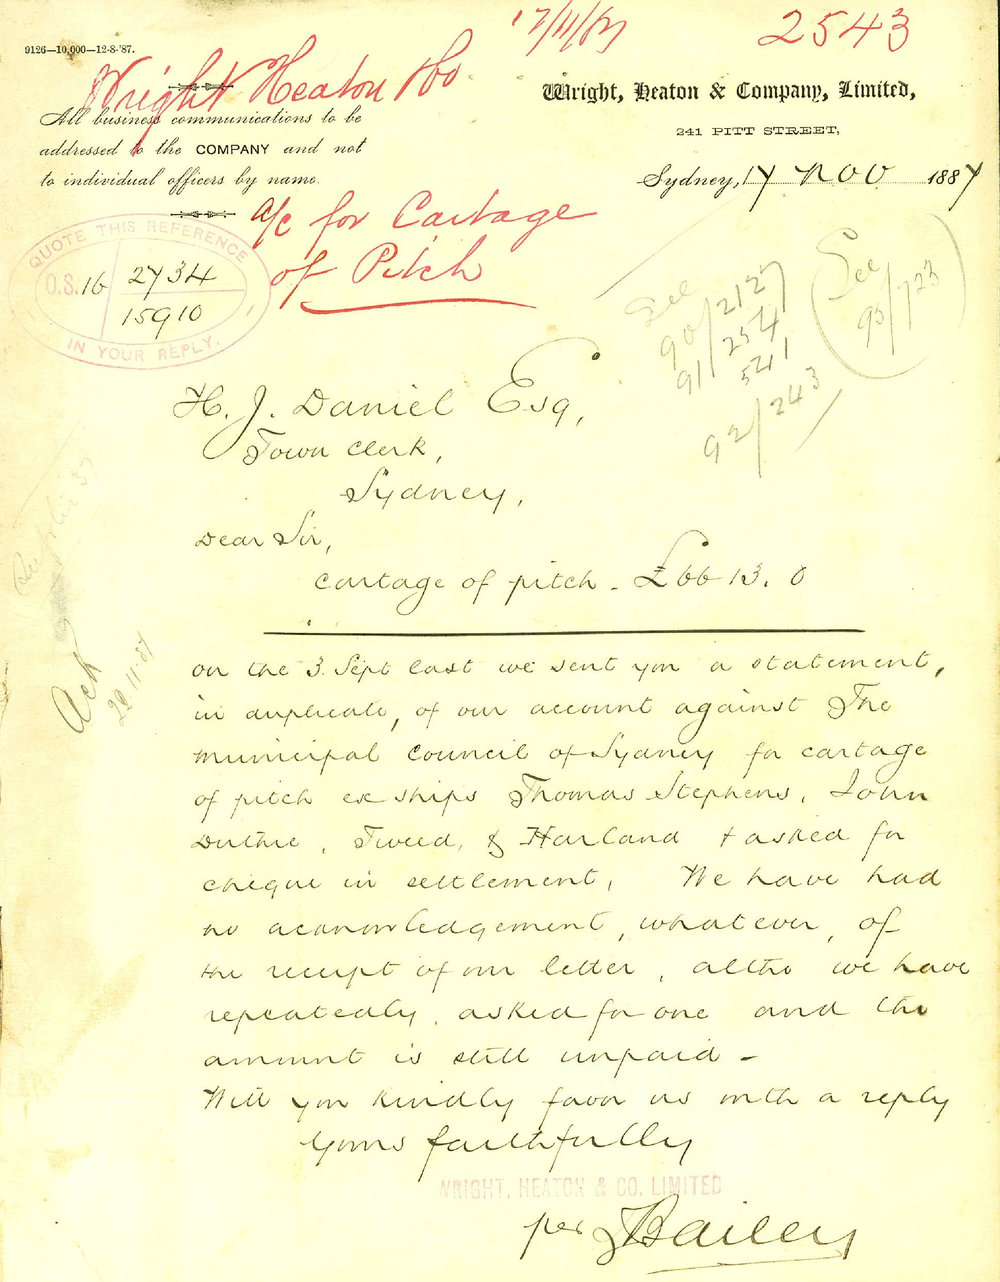 9126—10,000—12-8-'87.
17/11/87
2543
Wright Heaton & Co
Wright, Heaton & Company, Limited,
241 PITT STREET,
All business communications to be
addressed to the COMPANY and not
to individual officers by name.
Sydney, 17 Nov 1887
a/c for Cartage
of Pitch
QUOTE THIS REFERENCE
O.S. 16 2734
15910
IN YOUR REPLY.
See
90/2127
91/254
541
92/243
See
93/723
H. J. Daniel Esq,
Town Clerk,
Sydney,
Dear Sir,
Cartage of pitch - £66 13. 0
On the 3 Sept last we sent you a statement,
in duplicate, of our account against The
Municipal Council of Sydney for cartage
of pitch ex ships Thomas Stephens, John
Duthie, Tweed, & Harland + asked for
cheque in settlement, We have had
no acknowledgement, whatever, of
the receipt of our letter, altho we have
repeatedly asked for one and the
amount is still unpaid -
Will you kindly favor us with a reply
Yours faithfully
WRIGHT, HEATON & CO. LIMITED
per J Bailey
Ack
22.11.87